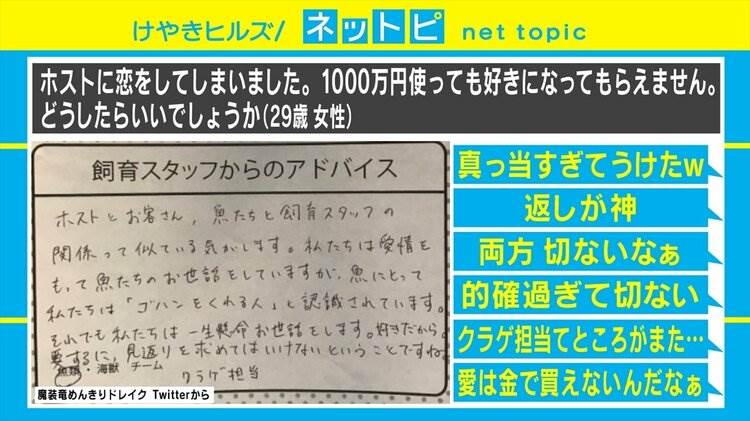 けやきヒルズ/ ネットピ net topic
ホストに恋をしてしまいました。1000万円使っても好きになってもらえません。
どうしたらいいでしょうか(29歳 女性)
飼育スタッフからのアドバイス
ホストとお客さん、魚たちと飼育スタッフの
関係って似ている気がします。私たちは愛情を
もって魚たちのお世話をしていますが、魚にとって
私たちは「ゴハンをくれる人」と認識されています。
それでも私たちは一生懸命お世話をします。好きだから。
要するに、見返りを求めてはいけないということですね。
魚類・海獣 チーム
クラゲ担当
魔装竜めんきりドレイク Twitterから
真っ当すぎてうけたw
返しが神
両方 切ないなぁ
的確過ぎて切ない
クラゲ担当てところがまた…
愛は金で買えないんだなぁ